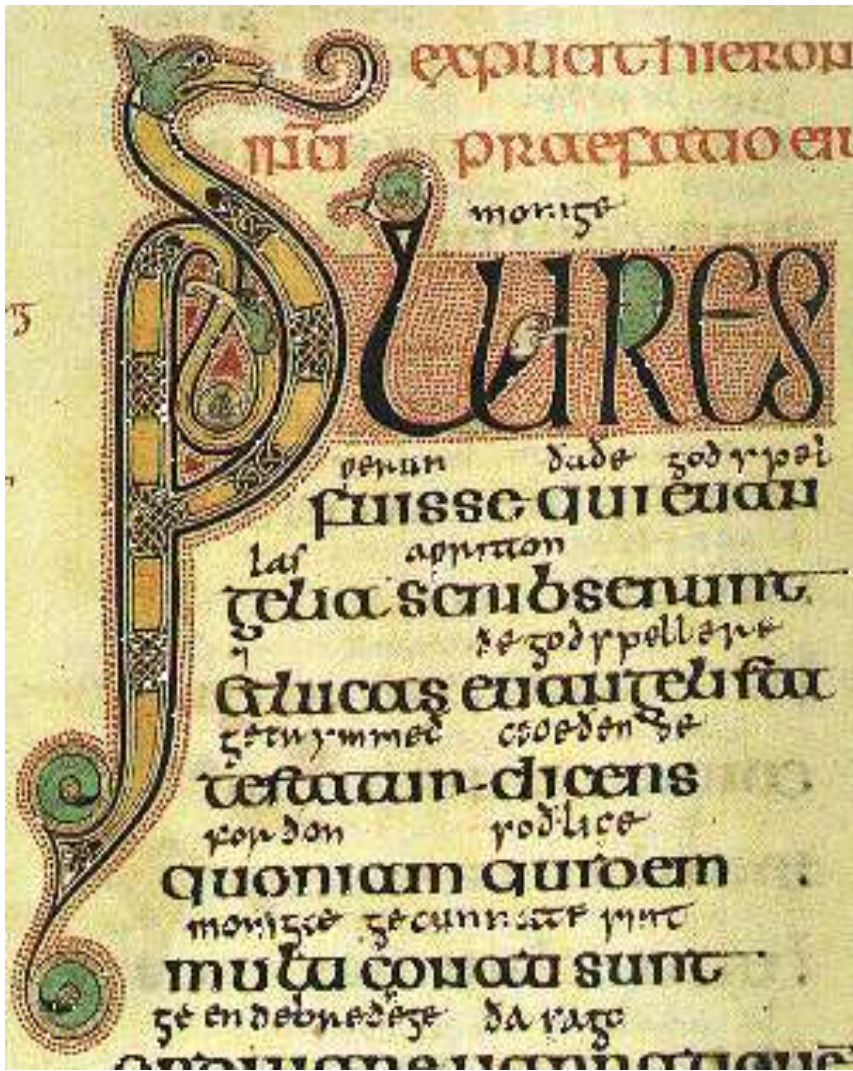 explicit hieron
praefatio eiu
monige
PLURES
uerun ðaðe godspel
fuisse qui euan
las auritton
gelia scribserunt
⁊ ðe godspellere
et lucas euangelista
getrymmed cuoeðende
testatur dicens
forðon soðlice
quoniam quidem
monigæ gecunnate sint
multi conati sunt
ge endebrednege ða saga
ordinare narrationē